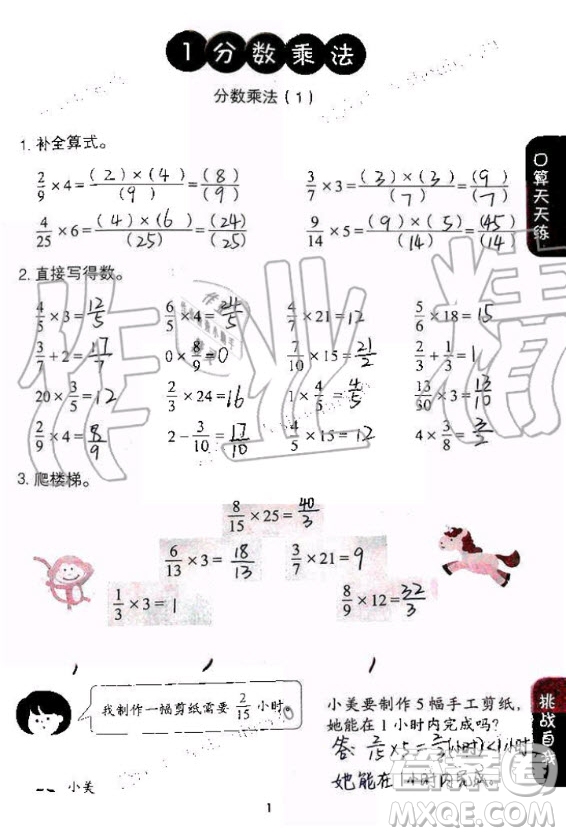 1 分数乘法
分数乘法(1)
口算天天练
1. 补全算式。
2/9 × 4 = (2)×(4)/(9) = (8)/(9)    3/7 × 3 = (3)×(3)/(7) = (9)/(7)
4/25 × 6 = (4)×(6)/(25) = (24)/(25)    9/14 × 5 = (9)×(5)/(14) = (45)/(14)
2. 直接写得数。
4/5 × 3 = 12/5    6/5 × 4 = 24/5    4/7 × 21 = 12    5/6 × 18 = 15
3/7 + 2 = 17/7    0 × 8/9 = 0    7/10 × 15 = 21/2    2/3 + 1/3 = 1
20 × 3/5 = 12    2/3 × 24 = 16    1 × 4/5 = 4/5    13/30 × 3 = 13/10
2/9 × 4 = 8/9    2 - 3/10 = 17/10    4/5 × 15 = 12    4 × 3/8 = 3/2
3. 爬楼梯。
8/15 × 25 = 40/3
6/13 × 3 = 18/13    3/7 × 21 = 9
1/3 × 3 = 1    8/9 × 12 = 32/3
挑战自我
我制作一幅剪纸需要 2/15 小时。
小美
小美要制作 5 幅手工剪纸,
她能在 1 小时内完成吗?
答: 2/15 × 5 = 2/3 (小时) < 1小时,
她能在1小时内完成。
1
作业精
答案圈
MXQE.COM